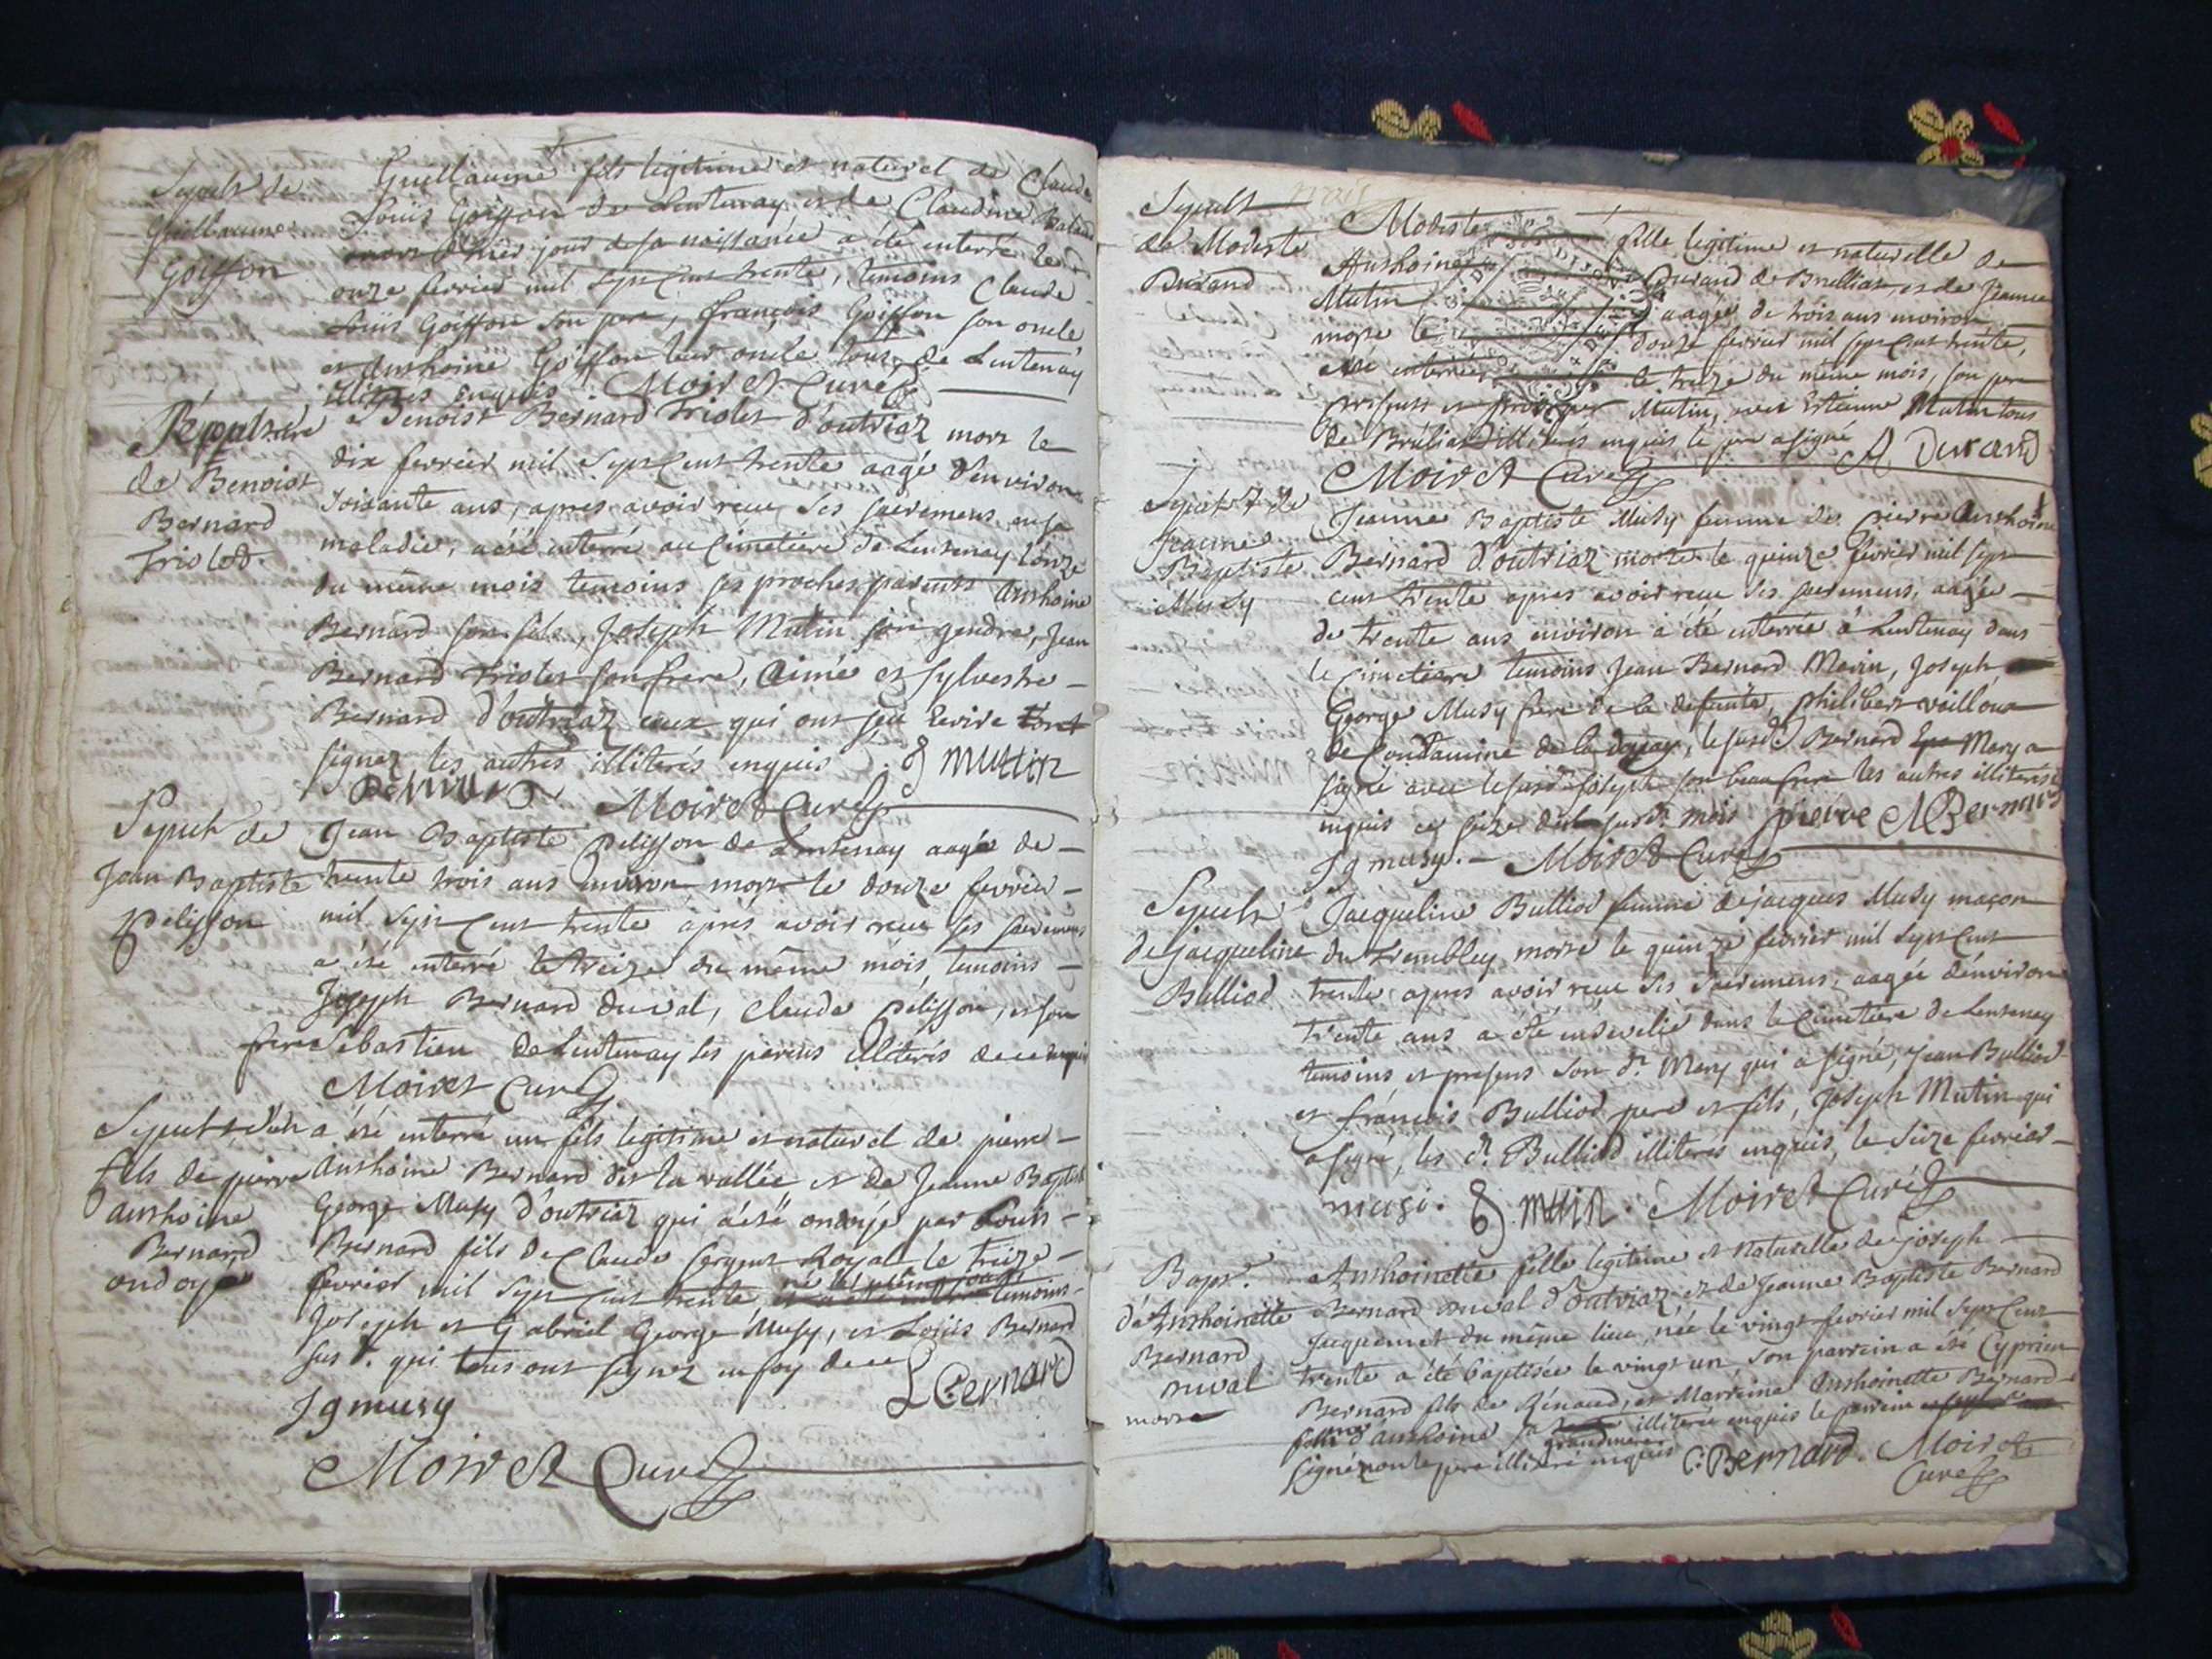 Sepult de
Guillaume
Goiffon
Guillaume fils legitime et naturel de Claude
Louis Goiffon de Lentenay et de Claudine
mort d'hier jour de sa naissance a été enterré le
onze fevrier mil sept cent trente, temoins Claude
Louis Goiffon son pere, françois Goiffon son oncle
et Anthoine Goiffon leur oncle tous de Lentenay
illiteres enquis Moiret Curé
Sepulture
de Benoist
Bernard
Triolet.
Benoist Bernard Triolet d'outriaz mort le
dix fevrier mil sept cent trente aagé d'environ
soisante ans, apres avoir receu ses sacremens en sa
maladie, a été enterré au Cimetiere de Lentenay l'onze
du même mois temoins ses proches parents Anthoine
Bernard son fils, Joseph Mutin son gendre, Jean
Bernard Triolet son frere, Aimé et Sylvestre
Bernard d'outriaz ceux qui ont sceu Ecrire l'ont
signez les autres illiterés enquis. J mutin
Moiret Curé
Sepult de
Jean Baptiste
pelisson
Jean Baptiste Pelisson de Lentenay aagé de
trente trois ans environ mort le douze fevrier
mil sept cent trente apres avoir receu ses sacremens
a été enterré le treize du même mois, temoins
Joseph Bernard duval, Claude pelisson, et son
frere Sebastien de Lentenay ses parens illiterés de ce enquis
Moiret Curé
Sepult d'un
fils de pierre
anthoine
Bernard
ondoyé
a été enterré un fils legitime et naturel de pierre
Anthoine Bernard dit la vallée et de Jeanne Baptiste
George Musy d'outriaz qui a été ondoyé par Louis
Bernard fils de Claude sergent Royal le treize
fevrier mil sept cent trente né le même jour temoins
Joseph et Gabriel George Musy, et Louis Bernard
sus d. qui tous ont signez en foy de ce
J g musy L Bernard
Moiret Curé
Sepult
de Modeste
Durand
Modeste fille legitime et naturelle de
Anthoine Durand de Brulliat, et de Jeanne
Mutin aagée de trois ans environ
morte le douze fevrier mil sept cent trente,
été enterrée le treize du même mois, son pere
present et Mutin, avec Estienne Mutin tous
de Bruliat illiterés enquis le pere a signé A Durand
Moiret Curé
Sepult de
Jeanne
Baptiste
Musy
Jeanne Baptiste Musy femme de pierre Anthoine
Bernard d'outriaz morte le quinze fevrier mil sept
cent trente apres avoir receu ses sacremens, aagée
de trente ans environ a été enterrée à Lentenay dans
le Cimetiere temoins Jean Bernard Marin, Joseph
George Musy frere de la defunte, philibert vaillout
de Condamine de la doyay, le susd. Bernard Mary a
signé avec le susd. Joseph son beau frere les autres illiterés
enquis ce seize dud. susd. mois pierre A Bernard
J g musy. Moiret Curé
Sepult
de jacqueline
Bulliod
Jacqueline Bulliod femme de jacques Musy maçon
du tremblay morte le quinze fevrier mil sept cent
trente apres avoir receu ses sacremens, aagée d'environ
trente ans a été ensevelie dans le Cimetiere de Lentenay
temoins et presens son d. Mary qui a signé, Jean Bulliod
et françois Bulliod pere et fils, Joseph Mutin qui
a signé, les d. Bulliod illiterés enquis, le seize fevrier
musi. J. mutin. Moiret Curé
Bapt.
d'Anthoinette
Bernard
duval
morte
Anthoinette fille legitime et naturelle de joseph
Bernard duval d'outriaz et de Jeanne Baptiste Bernard
Jacquemet du même lieu, née le vingt fevrier mil sept cent
trente a été baptisée le vingt un son parrein a été Cyprien
Bernard fils de Renaud, et Marreine Anthoinette Bernard
d'anthoine sa grandmere illiterée enquis le parrein
signé non le pere illiteré enquis C. Bernard. Moiret
Curé